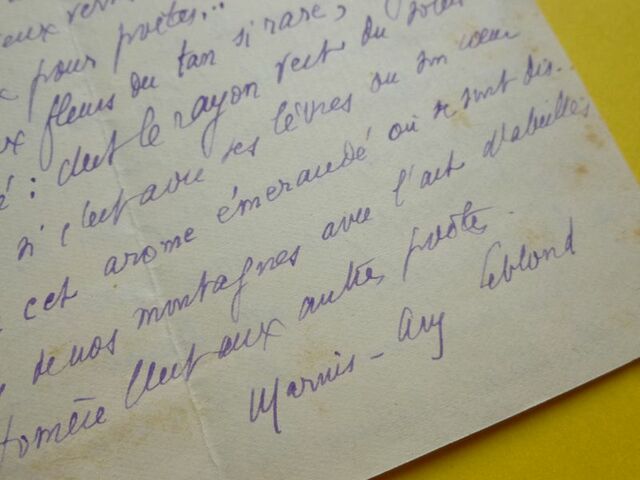 pour poètes...
fleurs du tan si rare,
: c'est le rayon vert du soleil
si c'est avec ses lèvres ou son cœur
cet arome émeraudé où se sont dis-
de nos montagnes avec l'art d'abeilles
c'est aux autres poètes.
Marius-Ary Leblond